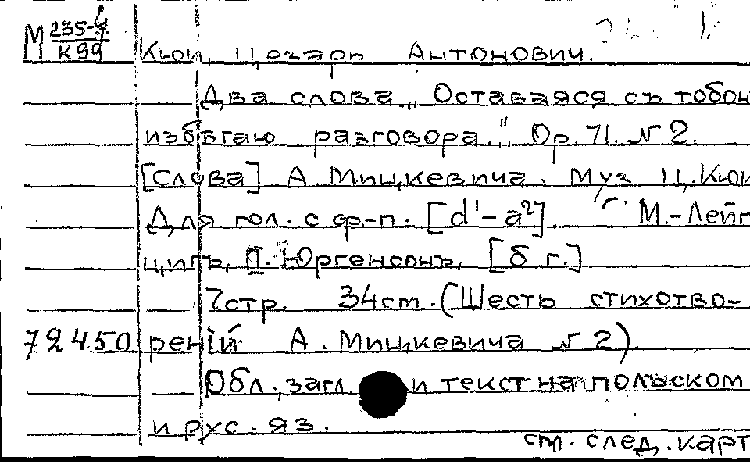 М 235-4
К99
Кюи Цезарь Антонович.
Два слова „Оставаяся съ тобой
избѣгаю разговора." Ор. 71. N 2.
[Слова] А Мицкевича. Муз Ц. Кюи
Для гол. с ф-п. [d¹-a²]. М.-Лейп
цигъ, П. Юргенсонъ, [б г.]
7стр. 34см. (Шесть стихотво-
72450 реній А. Мицкевича N 2)
Обл., загл. и текст на польском
и рус. яз.
см. след. карт